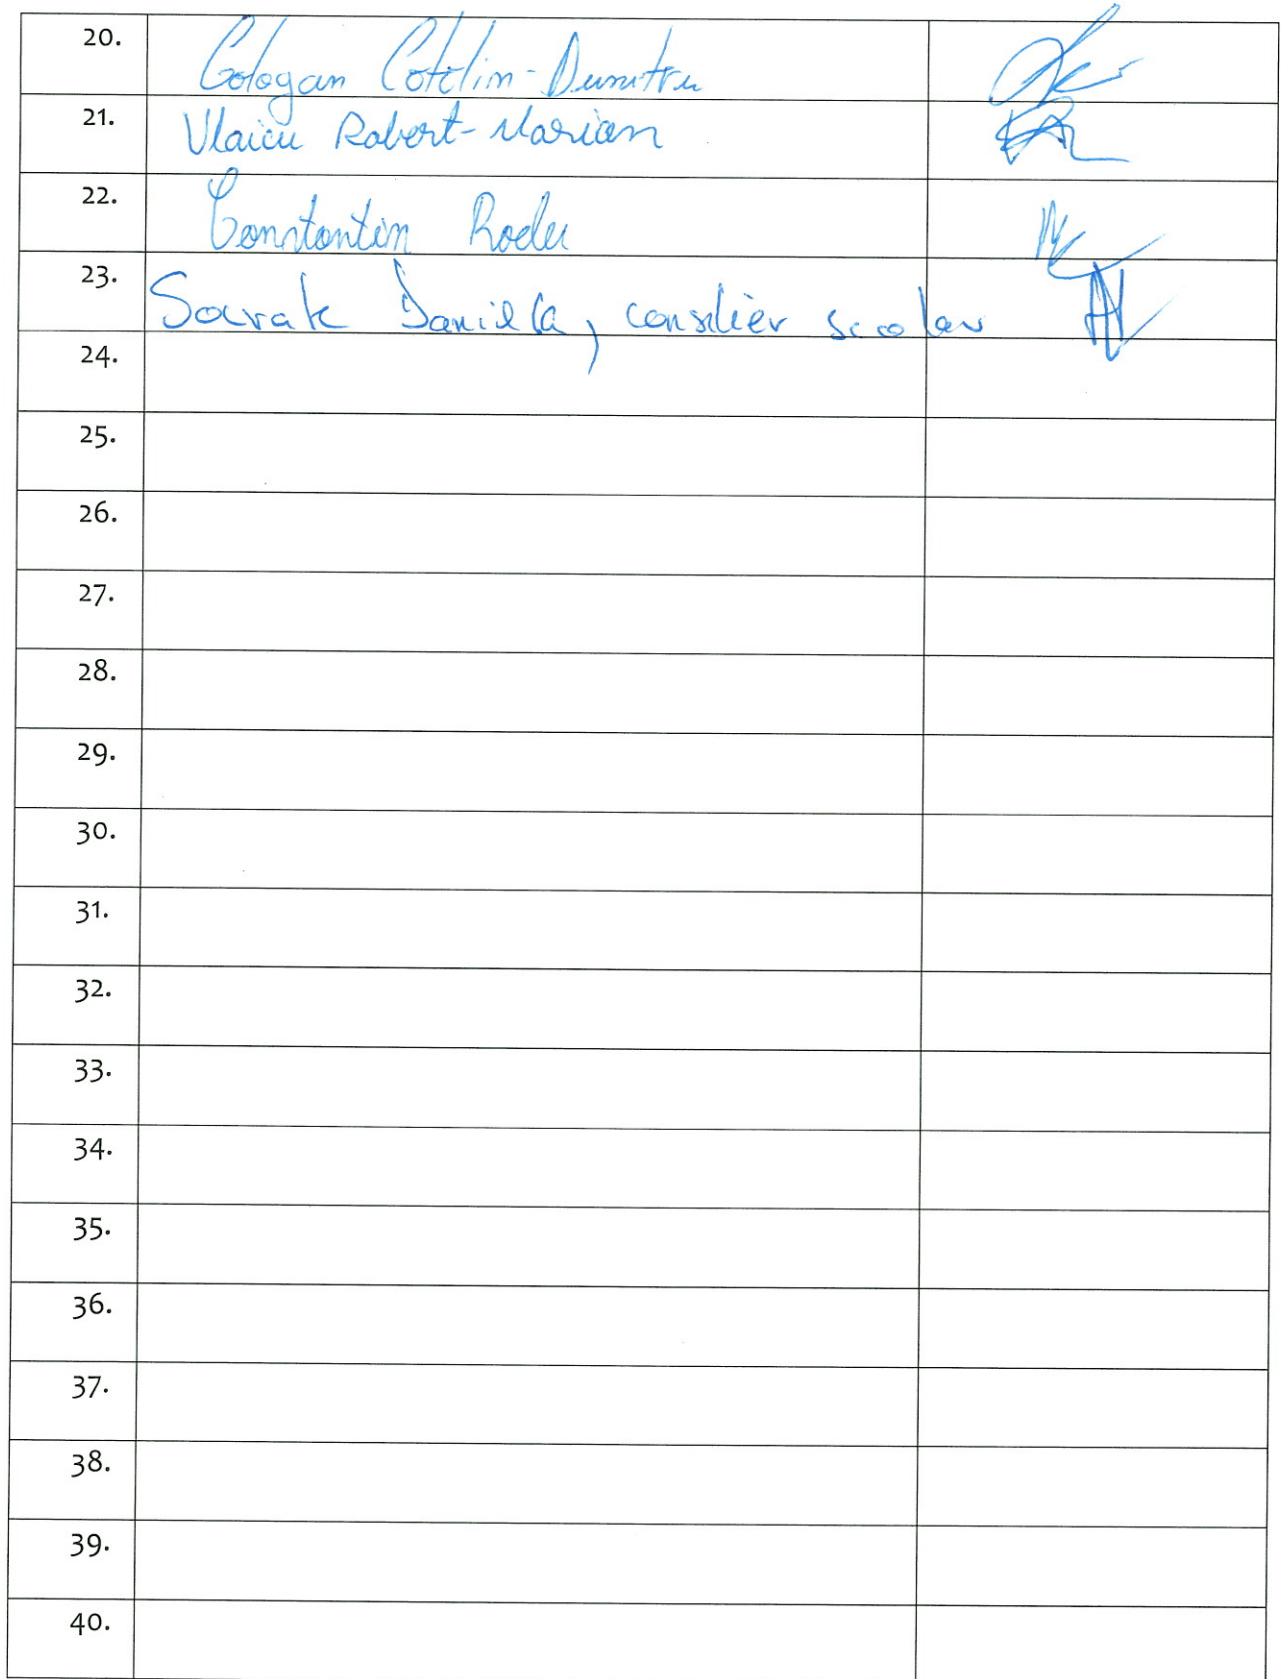 20. Cologan Cotelin-Dumitru
21. Vlaicu Robert-Marian
22. Constantin Radu
23. Daniela, consilier scolar
24.
25.
26.
27.
28.
29.
30.
31.
32.
33.
34.
35.
36.
37.
38.
39.
40.